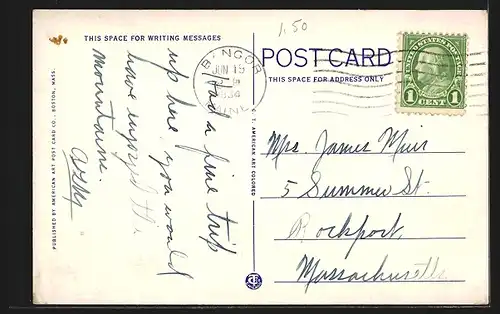 THIS SPACE FOR WRITING MESSAGES
BANGOR
JUN 19
1934
MAINE
1.50
POST CARD
THIS SPACE FOR ADDRESS ONLY
UNITED STATES POSTAGE
1 CENT 1
Had a fine trip
up here, you would
have enjoyed the
mountains.
Mrs. James Muir
5 Summer St.
Rockport,
Massachusetts
PUBLISHED BY AMERICAN ART POST CARD CO., BOSTON, MASS.
C. T. AMERICAN ART COLORED